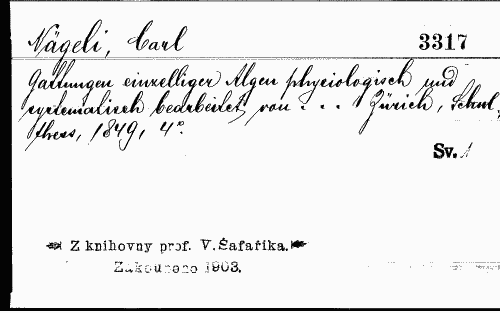 Nägeli, Carl 3317
Gattungen einzelliger Algen physiologisch und
systematisch bearbeitet von . . . Zürich, Schul,
thess, 1849, 4°.
Sv. 1
Z knihovny prof. V. Šafaříka.
Zakoupeno 1903.